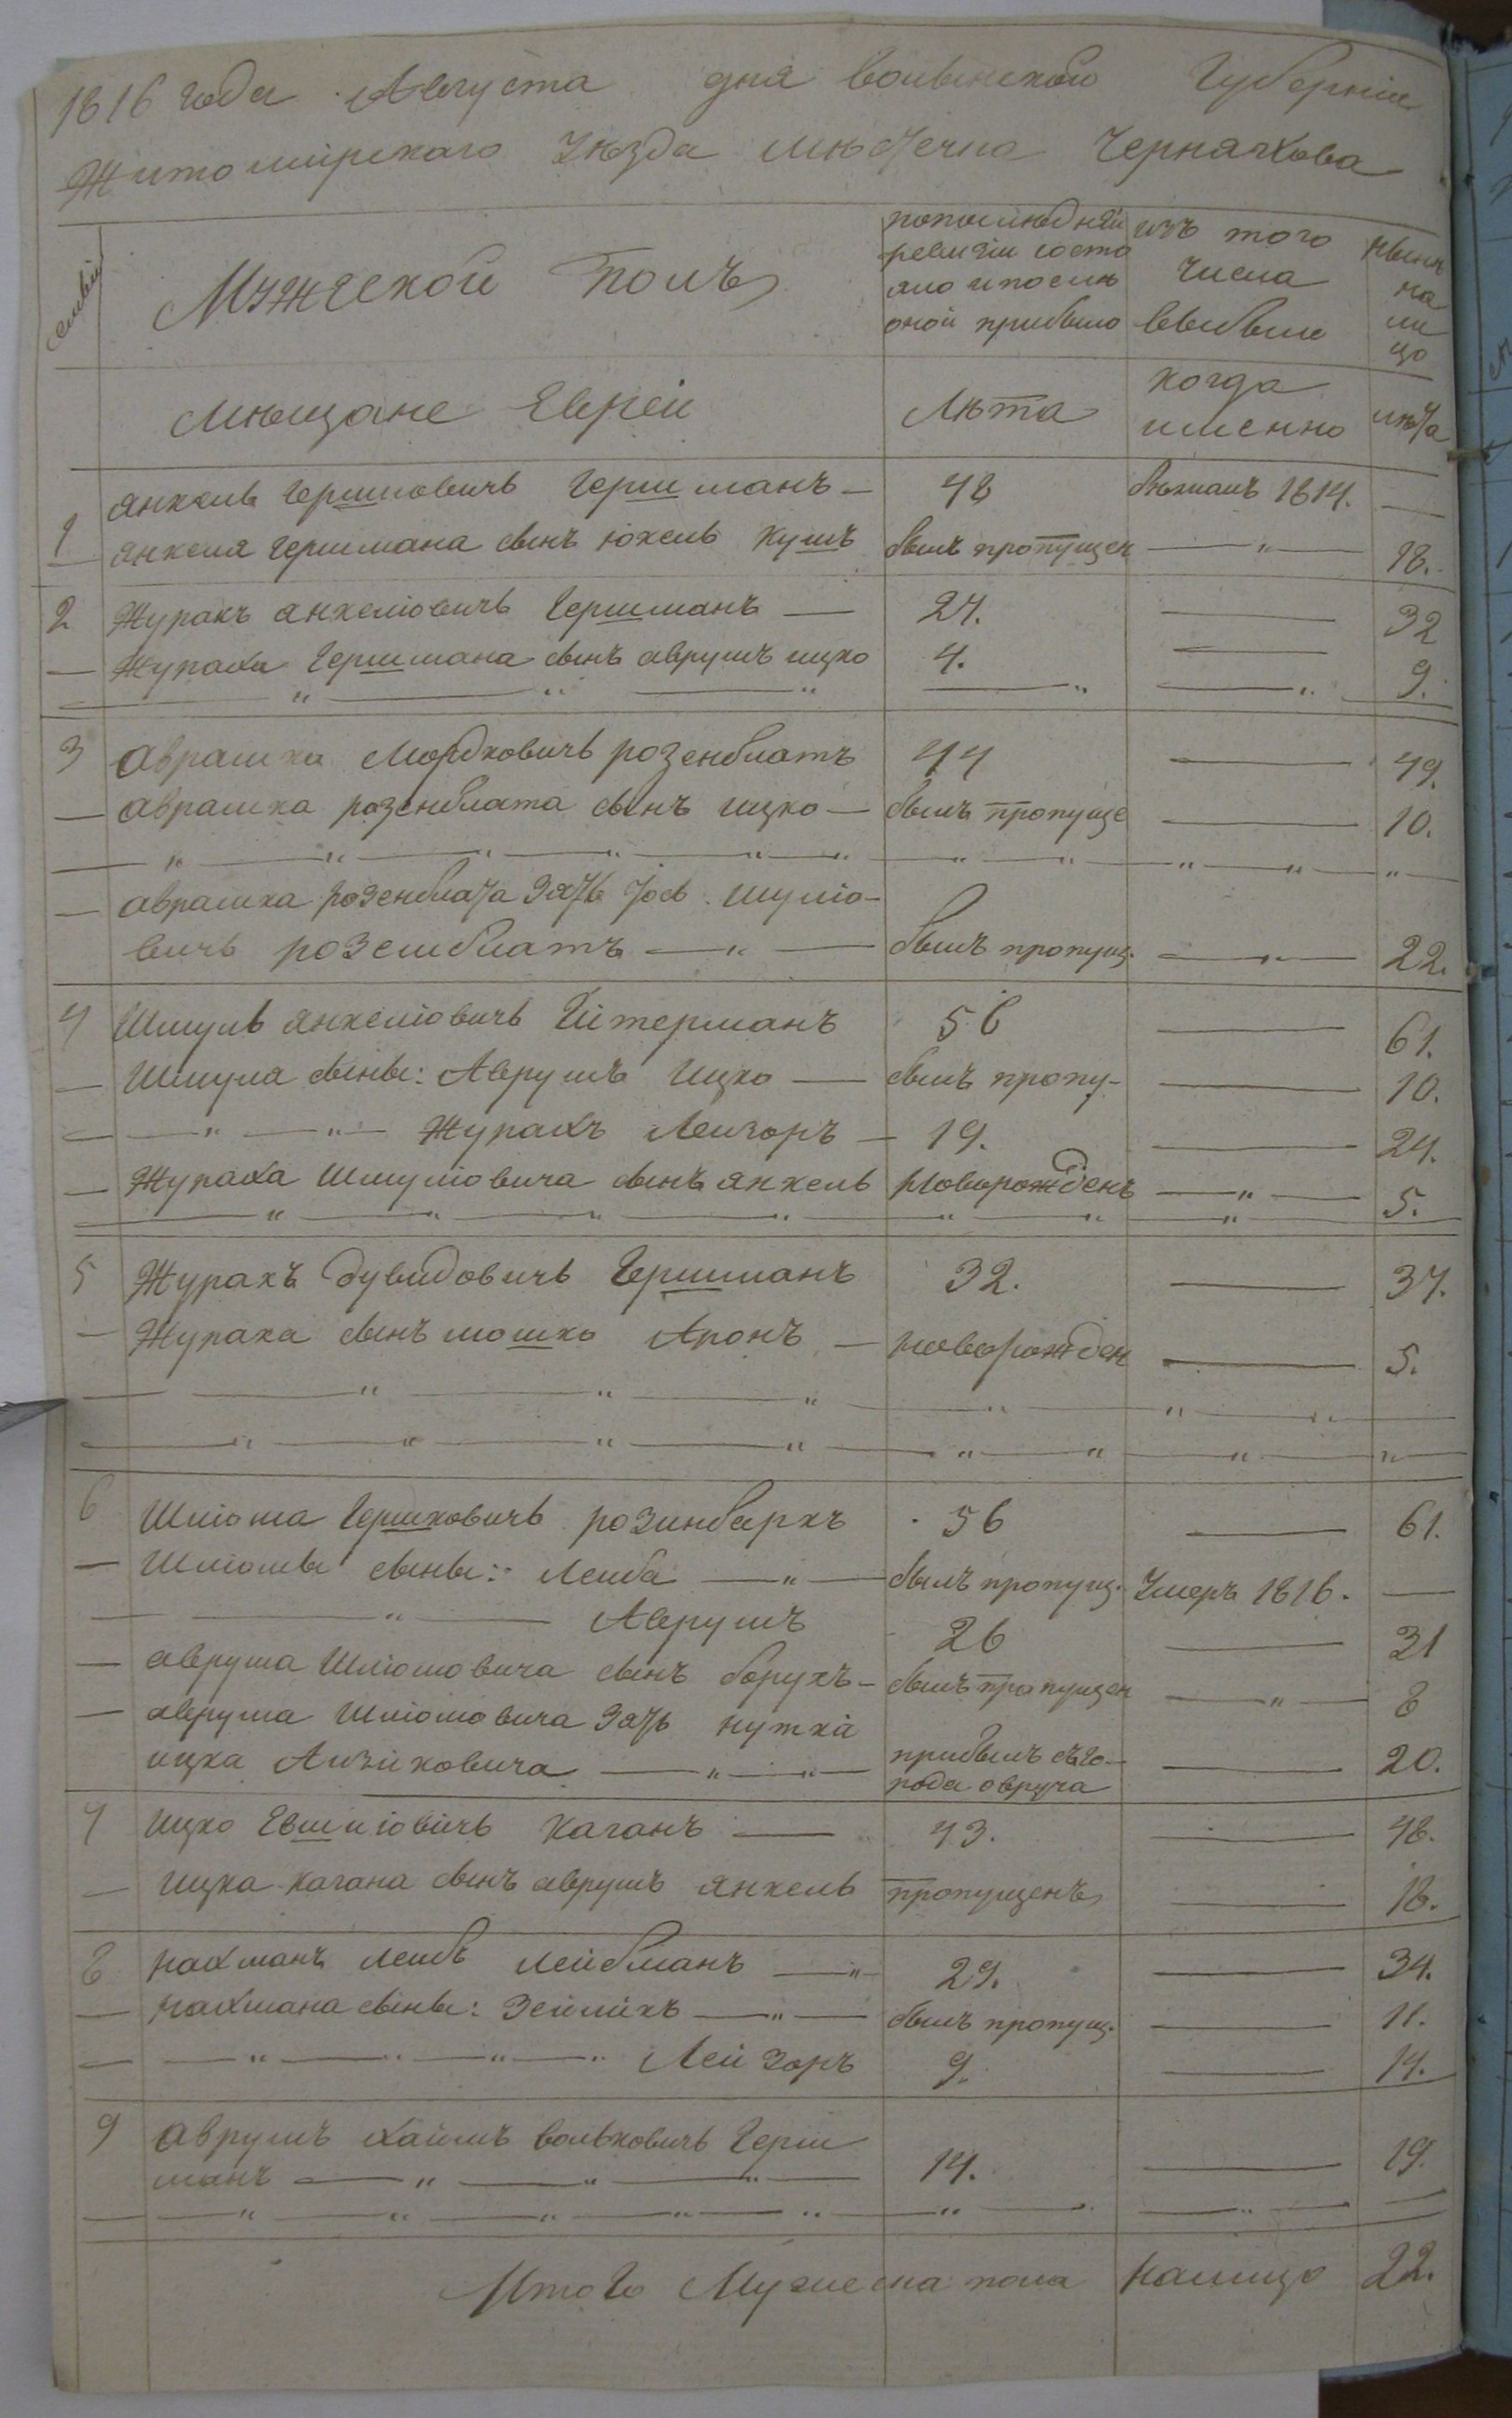 1816 года Августа дня волынской Губернiи
Житомiрскаго Уѣзда мѣстечка Черняхова
семьи
Мужеской полъ
попослѣдней
ревизiи состо
яло ипослѣ
оной прибыло
изъ того
числа
выбыли
Нынѣ
на
ли
цо
Мѣщане Евреи
Лѣта
когда
именно
лѣта
Янкель Гершковичь Гершманъ — 48 бѣжалъ 1814. —
1 Янкеля Гершмана сынъ Юкель Кушъ былъ пропущен — " — 18.
2 Журахъ Янкелiовичь Гершманъ — 27. — 32
— Жураха Гершмана сынъ аврумъ ицко 4. — 9.
3 Аврашка Мордковичь розенблатъ 44 — 49.
— Аврашка розенблата сынъ ицко — былъ пропуще — 10.
— аврашка розенблата Зять Iось Шулiо-
вичь роземблатъ — " — былъ пропущ. — " — 22.
4 Шмуль Янкелiовичь Гiтерманъ 56 — 61.
— Шмуля сыны: Аврумъ Ицко — былъ пропу- — 10.
— — " — " — Журахъ Леизоръ — 19. — 24.
— Жураха Шмулiовича сынъ янкель Новорожденъ — " — 5.
5 Журахъ Дувидовичь Гершманъ 32. — 37.
— Жураха сынъ мошко Аронъ — новорожден — 5.
6 Шлiома Гершковичь розинбаркъ 56 — 61.
— Шлiомы сыны: Леиба — " — былъ пропущ. Умеръ 1816. —
— — " — Аврумъ 26 — 31
— аврума Шлiомовича сынъ борухъ — былъ пропущен — " — 8
— аврума Шлiомовича Зять нутка
ицка Аизиковича — " — " — прибылъ съго-
рода овруча — 20.
7 Ицко Евшиiовичь Каганъ — 43. — 48.
— ицка Кагана сынъ аврумъ янкель пропущенъ — 18.
8 Нахманъ леибъ леибманъ — " 29. — 34.
— Нахмана сыны: Зейликъ — " — былъ пропущ. — 11.
— — " — " — " — " Лейзоръ 9. — 14.
9 Аврумъ Хаимъ волковичь Герш
манъ — " — " — " — 14. — 19.
Итого Мужеска пола Налицо 22.